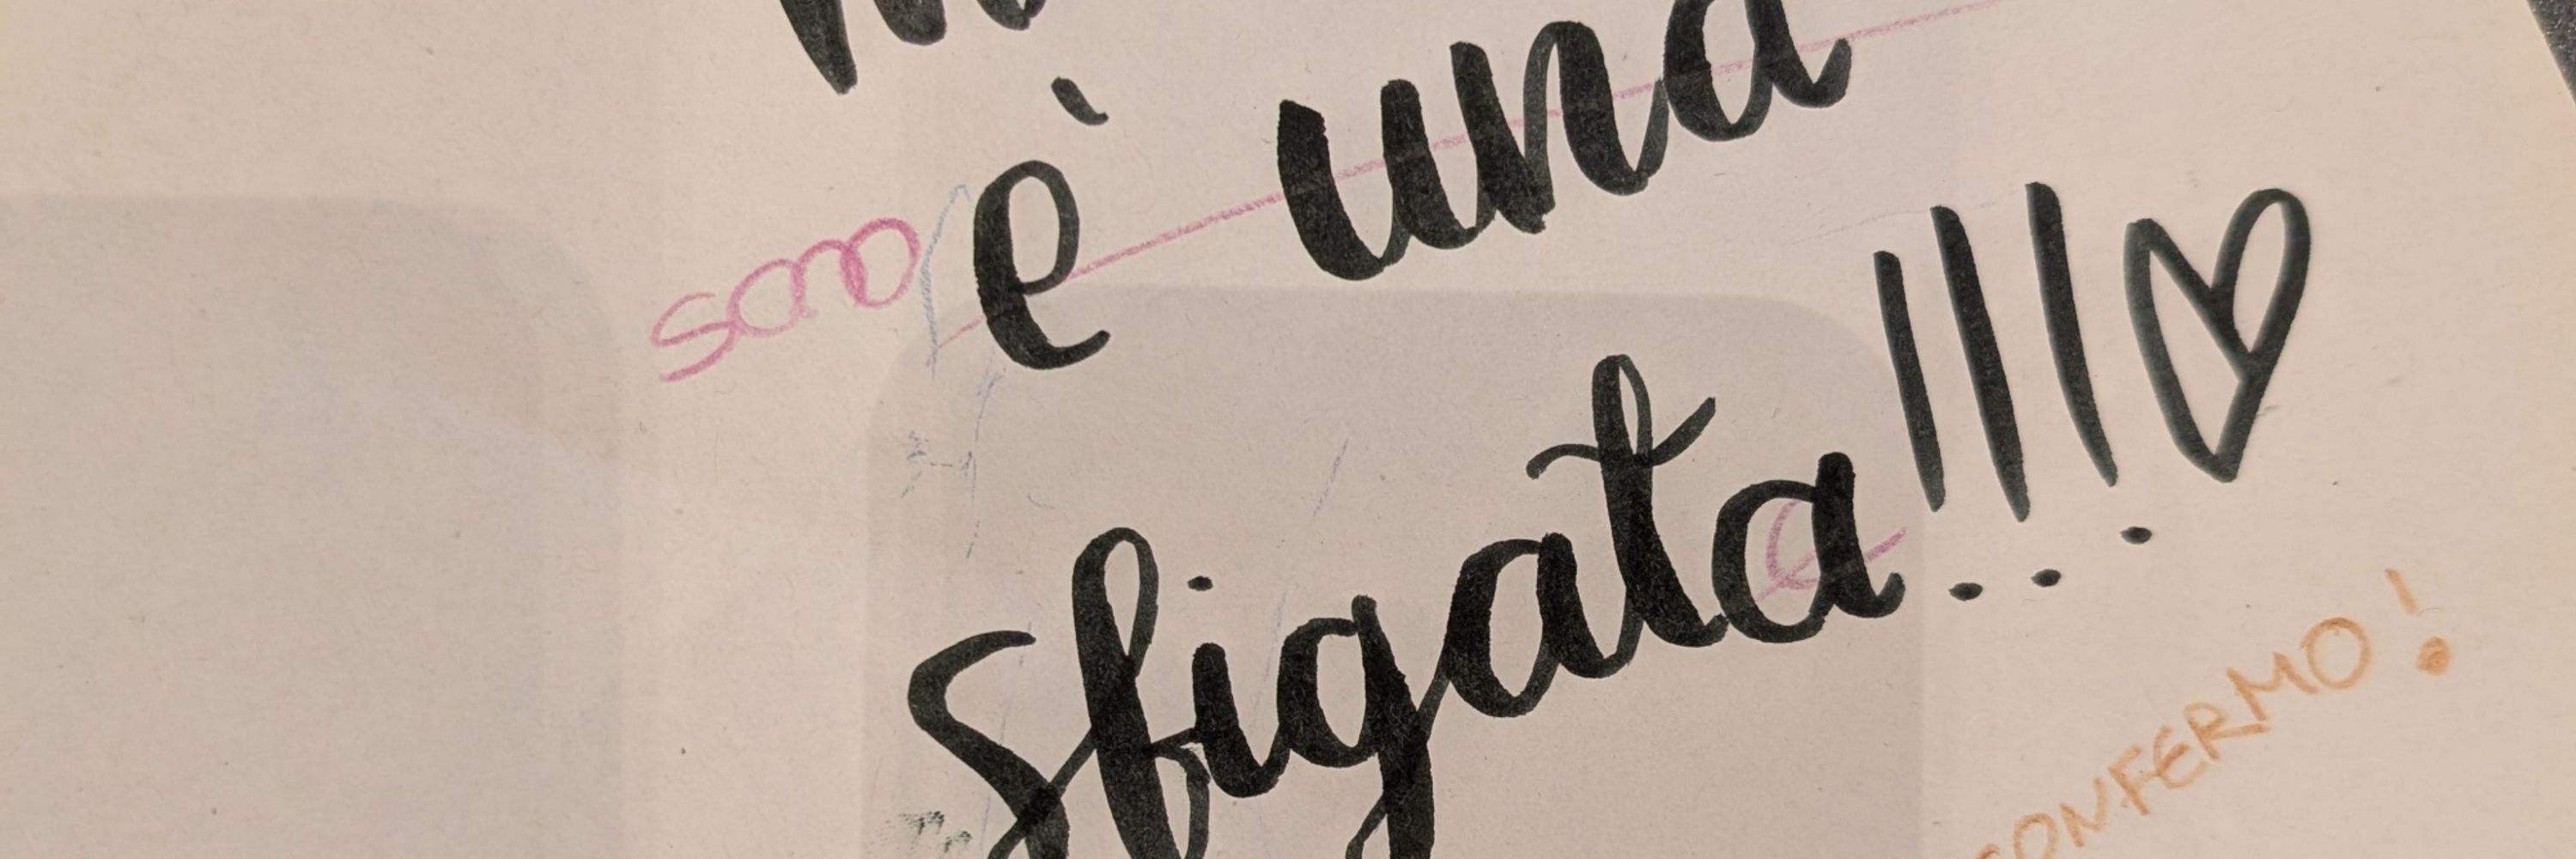 è una
sono
sfigata!!!♡
e
CONFERMO!